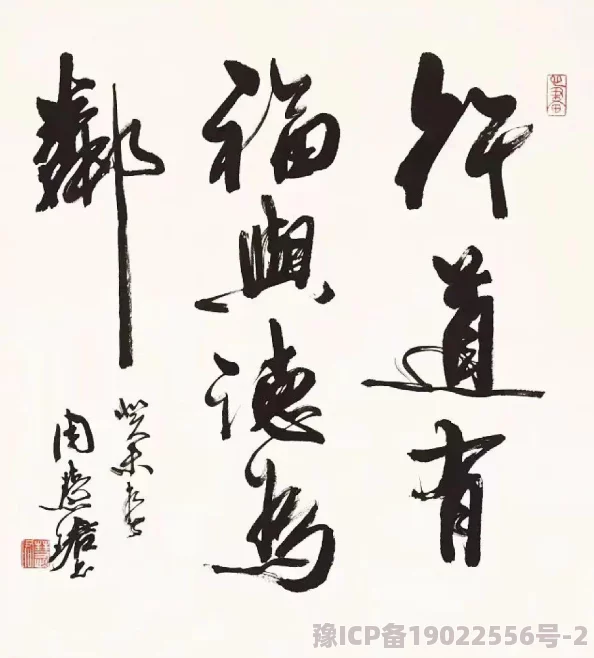 行道有
福與德為
鄰
癸未春
周慧珺书
豫ICP备19022556号-2